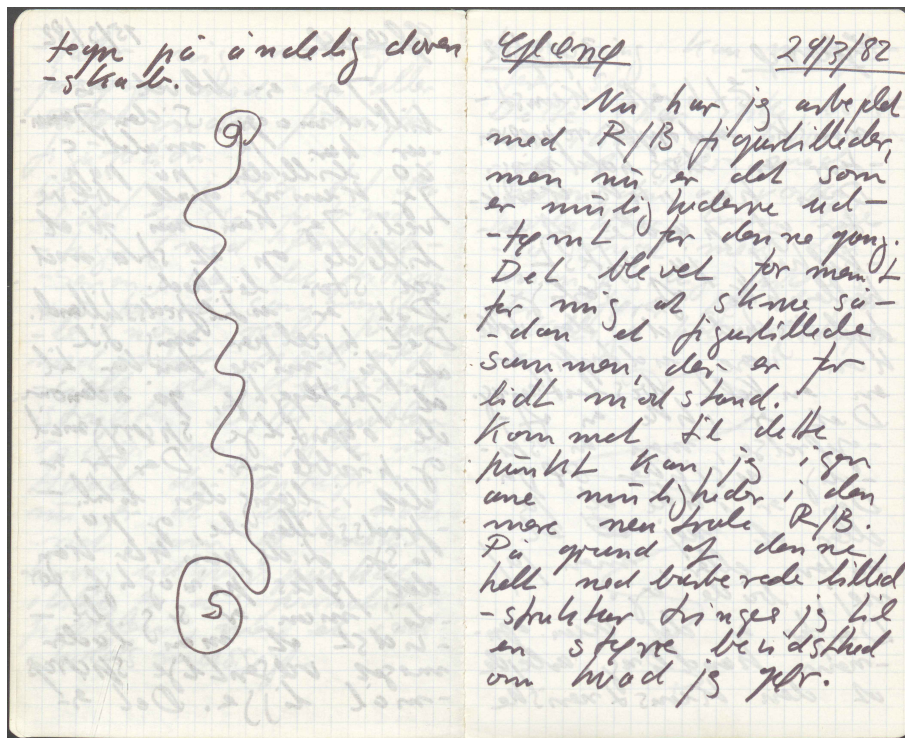 tegn på åndelig doven
-skab.
Gløng 29/3/82
Nu har jeg arbejdet
med R/B figurbilleder,
men nu er det som
er mulighederne ud-
-tømt for denne gang.
Det blevet for nemt
for mig at skrue så-
-dan et figurbillede
sammen, der er for
lidt modstand.
Kommet til dette
punkt kan jeg igen
ane muligheder i den
mere neutrale R/B.
På grund af denne
helt nedbarberede billed
-struktur tvinges jeg til
en større bevidsthed
om hvad jeg gør.